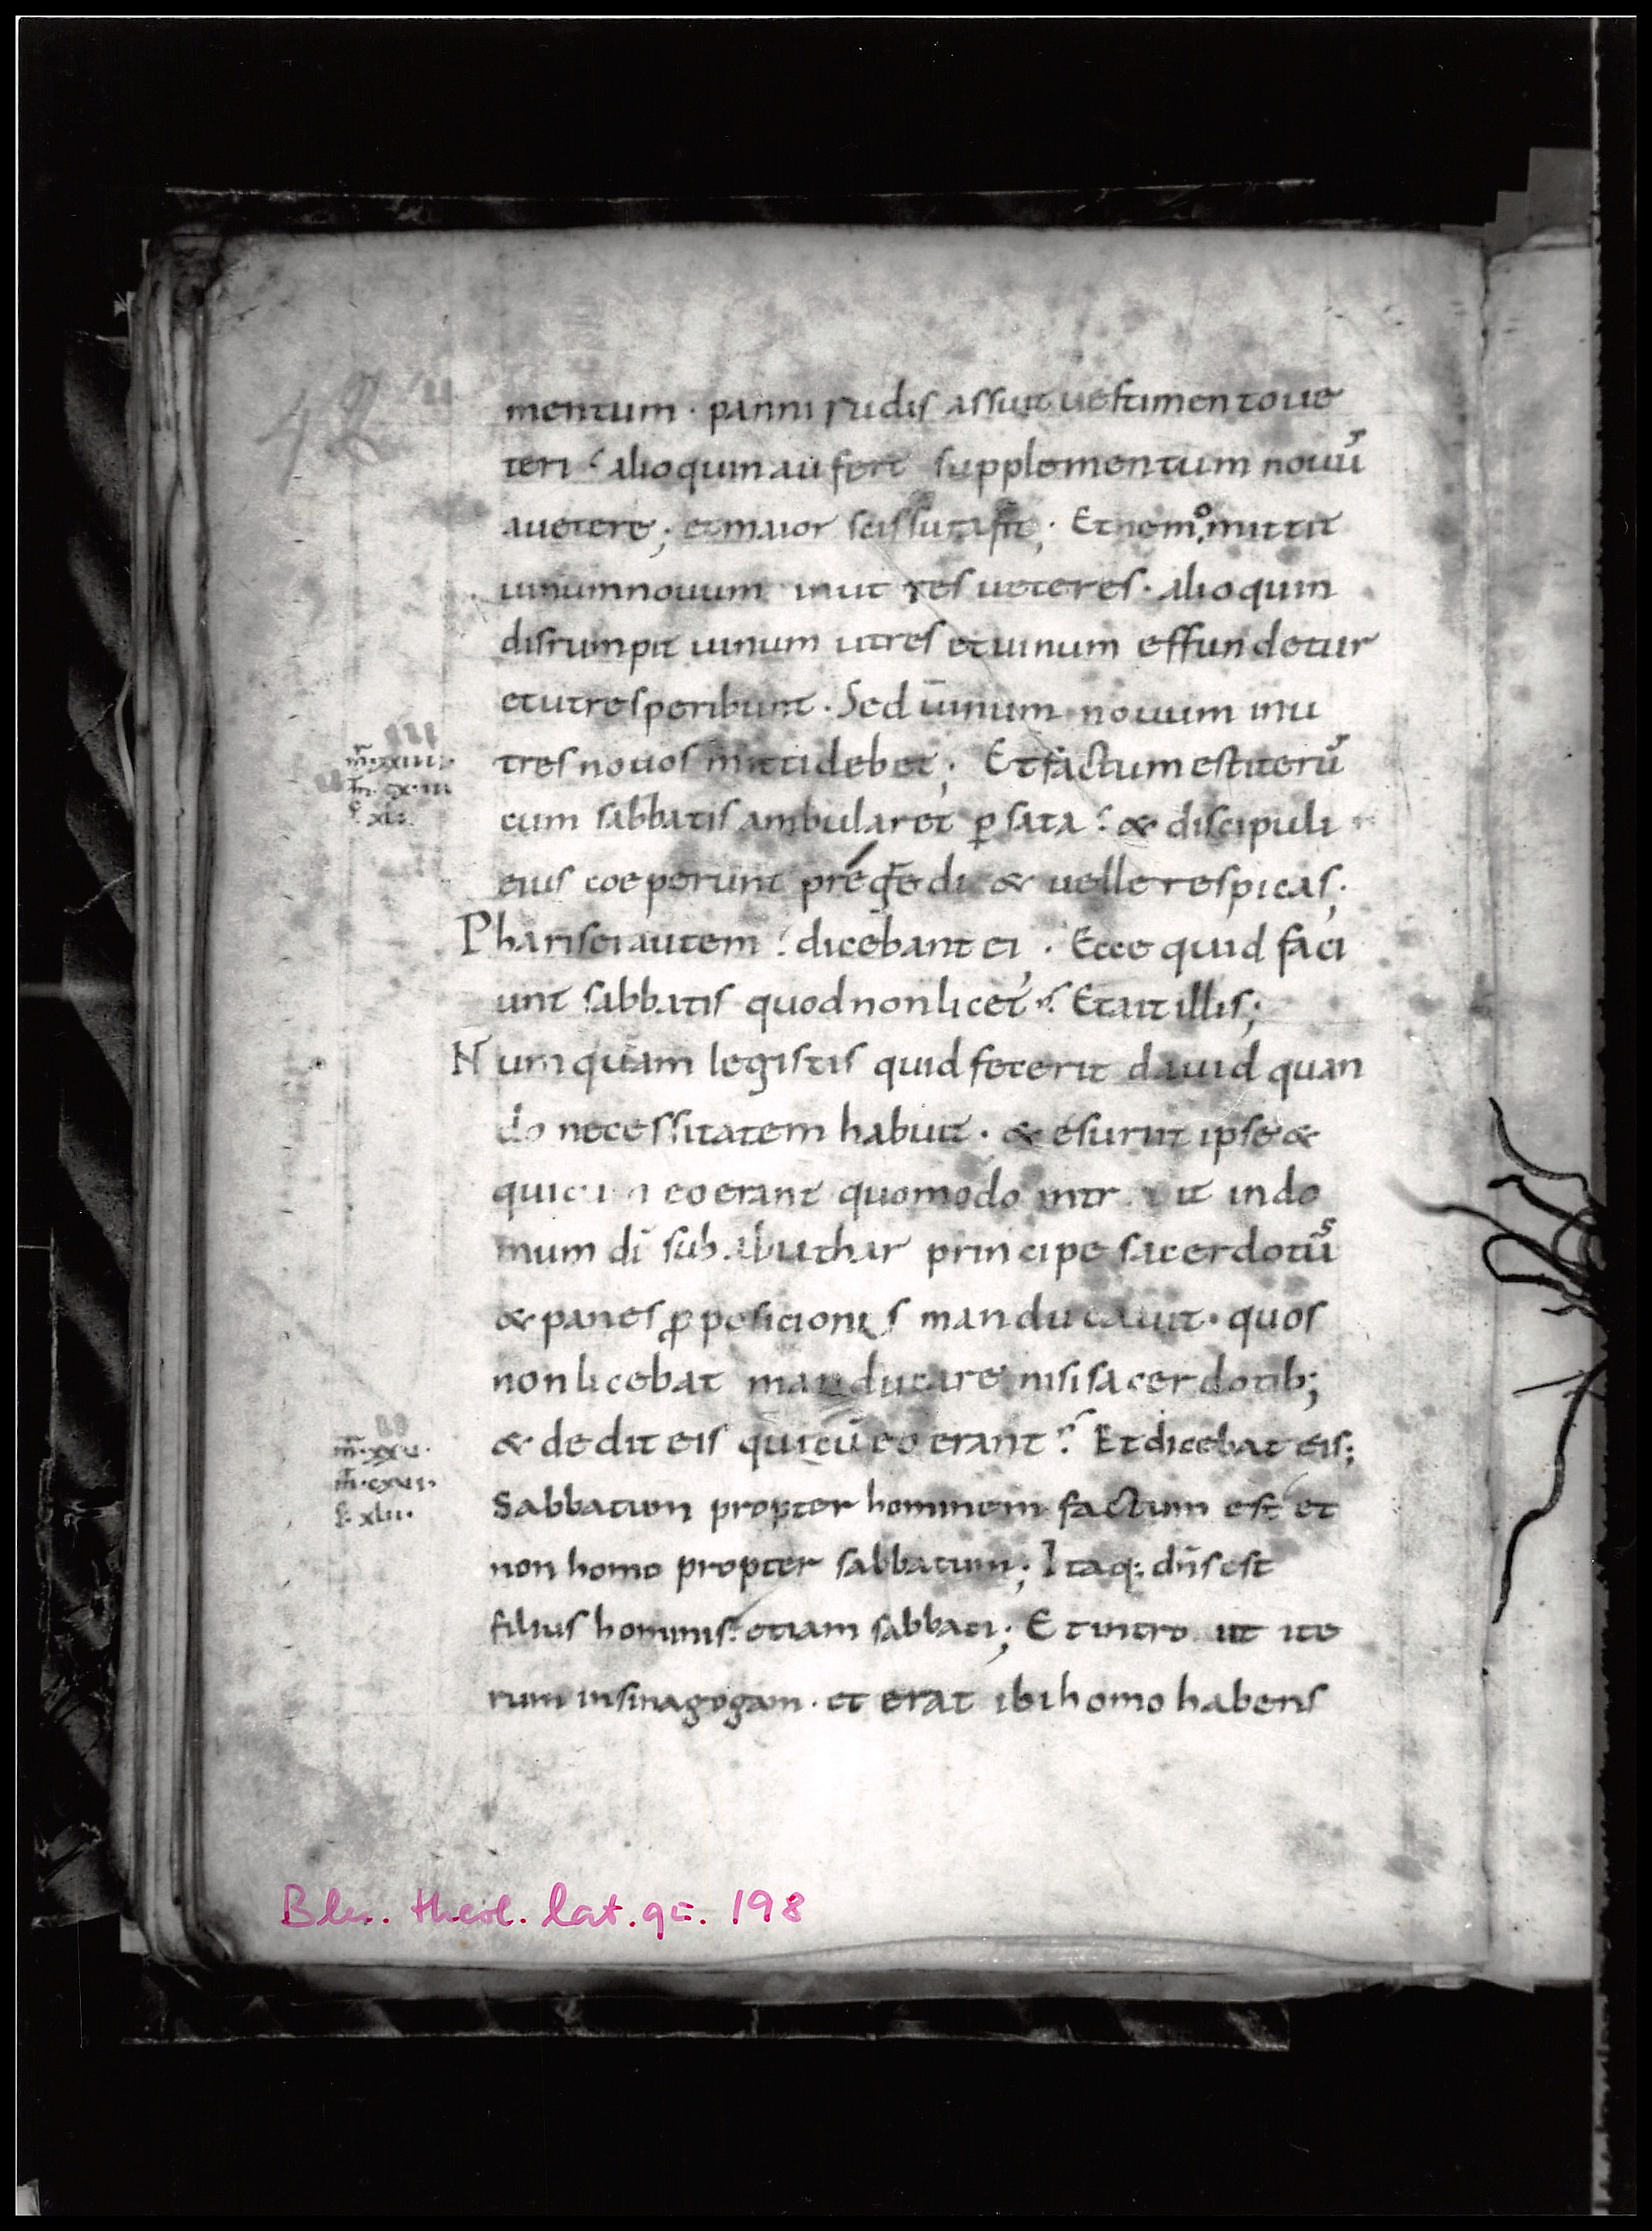 42
mentum · panni rudis assuit uestimento ue
teri · alioquin aufert supplementum nouū
a uetere ; et maior scissura fit ; Et nemo mittit
uinum nouum in ut res ueteres · alioquin
disrumpit uinum utres et uinum effundetur
et utres peribunt · Sed uinum nouum in u
tres nouos mitti debet ; Et factum est iterū
cum sabbatis ambularet ꝑ sata · & discipuli
eius coeperunt pregredi & uellere spicas ;
Pharisei autem · dicebant ei · Ecce quid faci
unt sabbatis quod non licet · Et ait illis ;
Numquam legistis quid fecerit dauid quan
do necessitatem habuit · & esuriit ipse &
qui eo erant quomodo intr it in do
mum dī sub abiathar principe sacerdotū
& panes ꝓposicionis manducauit · quos
non licebat manducare nisi sacerdotib;
& dedit eis qui cū eo erant · Et dicebat eis ;
xlii·
Sabbatum propter hominem factum est et
non homo propter sabbatum ; Itaq; dn̄s est
filius hominis · etiam sabbati ; Et intro it ite
rum in sinagogam · et erat ibi homo habens
theol. lat. qu. 198